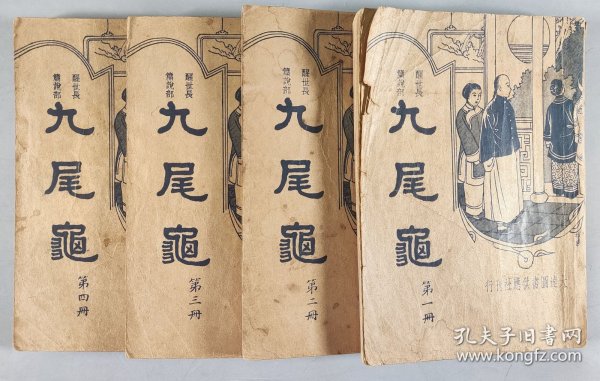 醒世長
篇說部
九尾龜
第四冊
醒世長
篇說部
九尾龜
第三冊
醒世長
篇說部
九尾龜
第二冊
醒世長
篇說部
九尾龜
第一冊
大達圖書供應社發行
孔夫子旧书网
www.kongfz.com